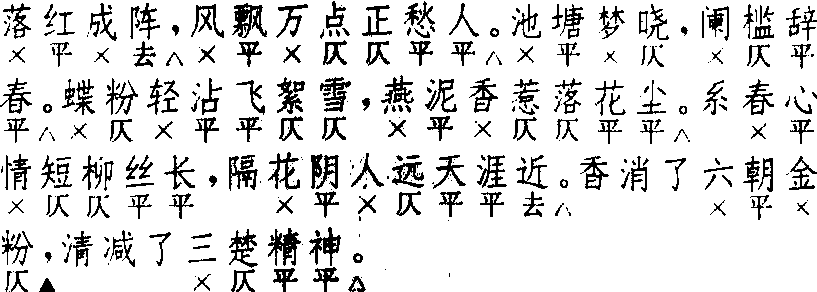 落红成阵,风飘万点正愁人。池塘梦晓,阑槛辞
× 平 × 去 △ × 平 × 仄 仄 平 平 △ × 平 × 仄 × 仄 平
春。蝶粉轻沾飞絮雪,燕泥香惹落花尘。系春心
平 △ × 仄 × 平 平 仄 仄 × 平 × 仄 仄 平 平 △ × 平
情短柳丝长,隔花阴人远天涯近。香消了六朝金
× 仄 仄 平 平 × 平 × 仄 平 平 去 △ × 平 ×
粉,清减了三楚精神。
仄 ▲ × 仄 平 平 △